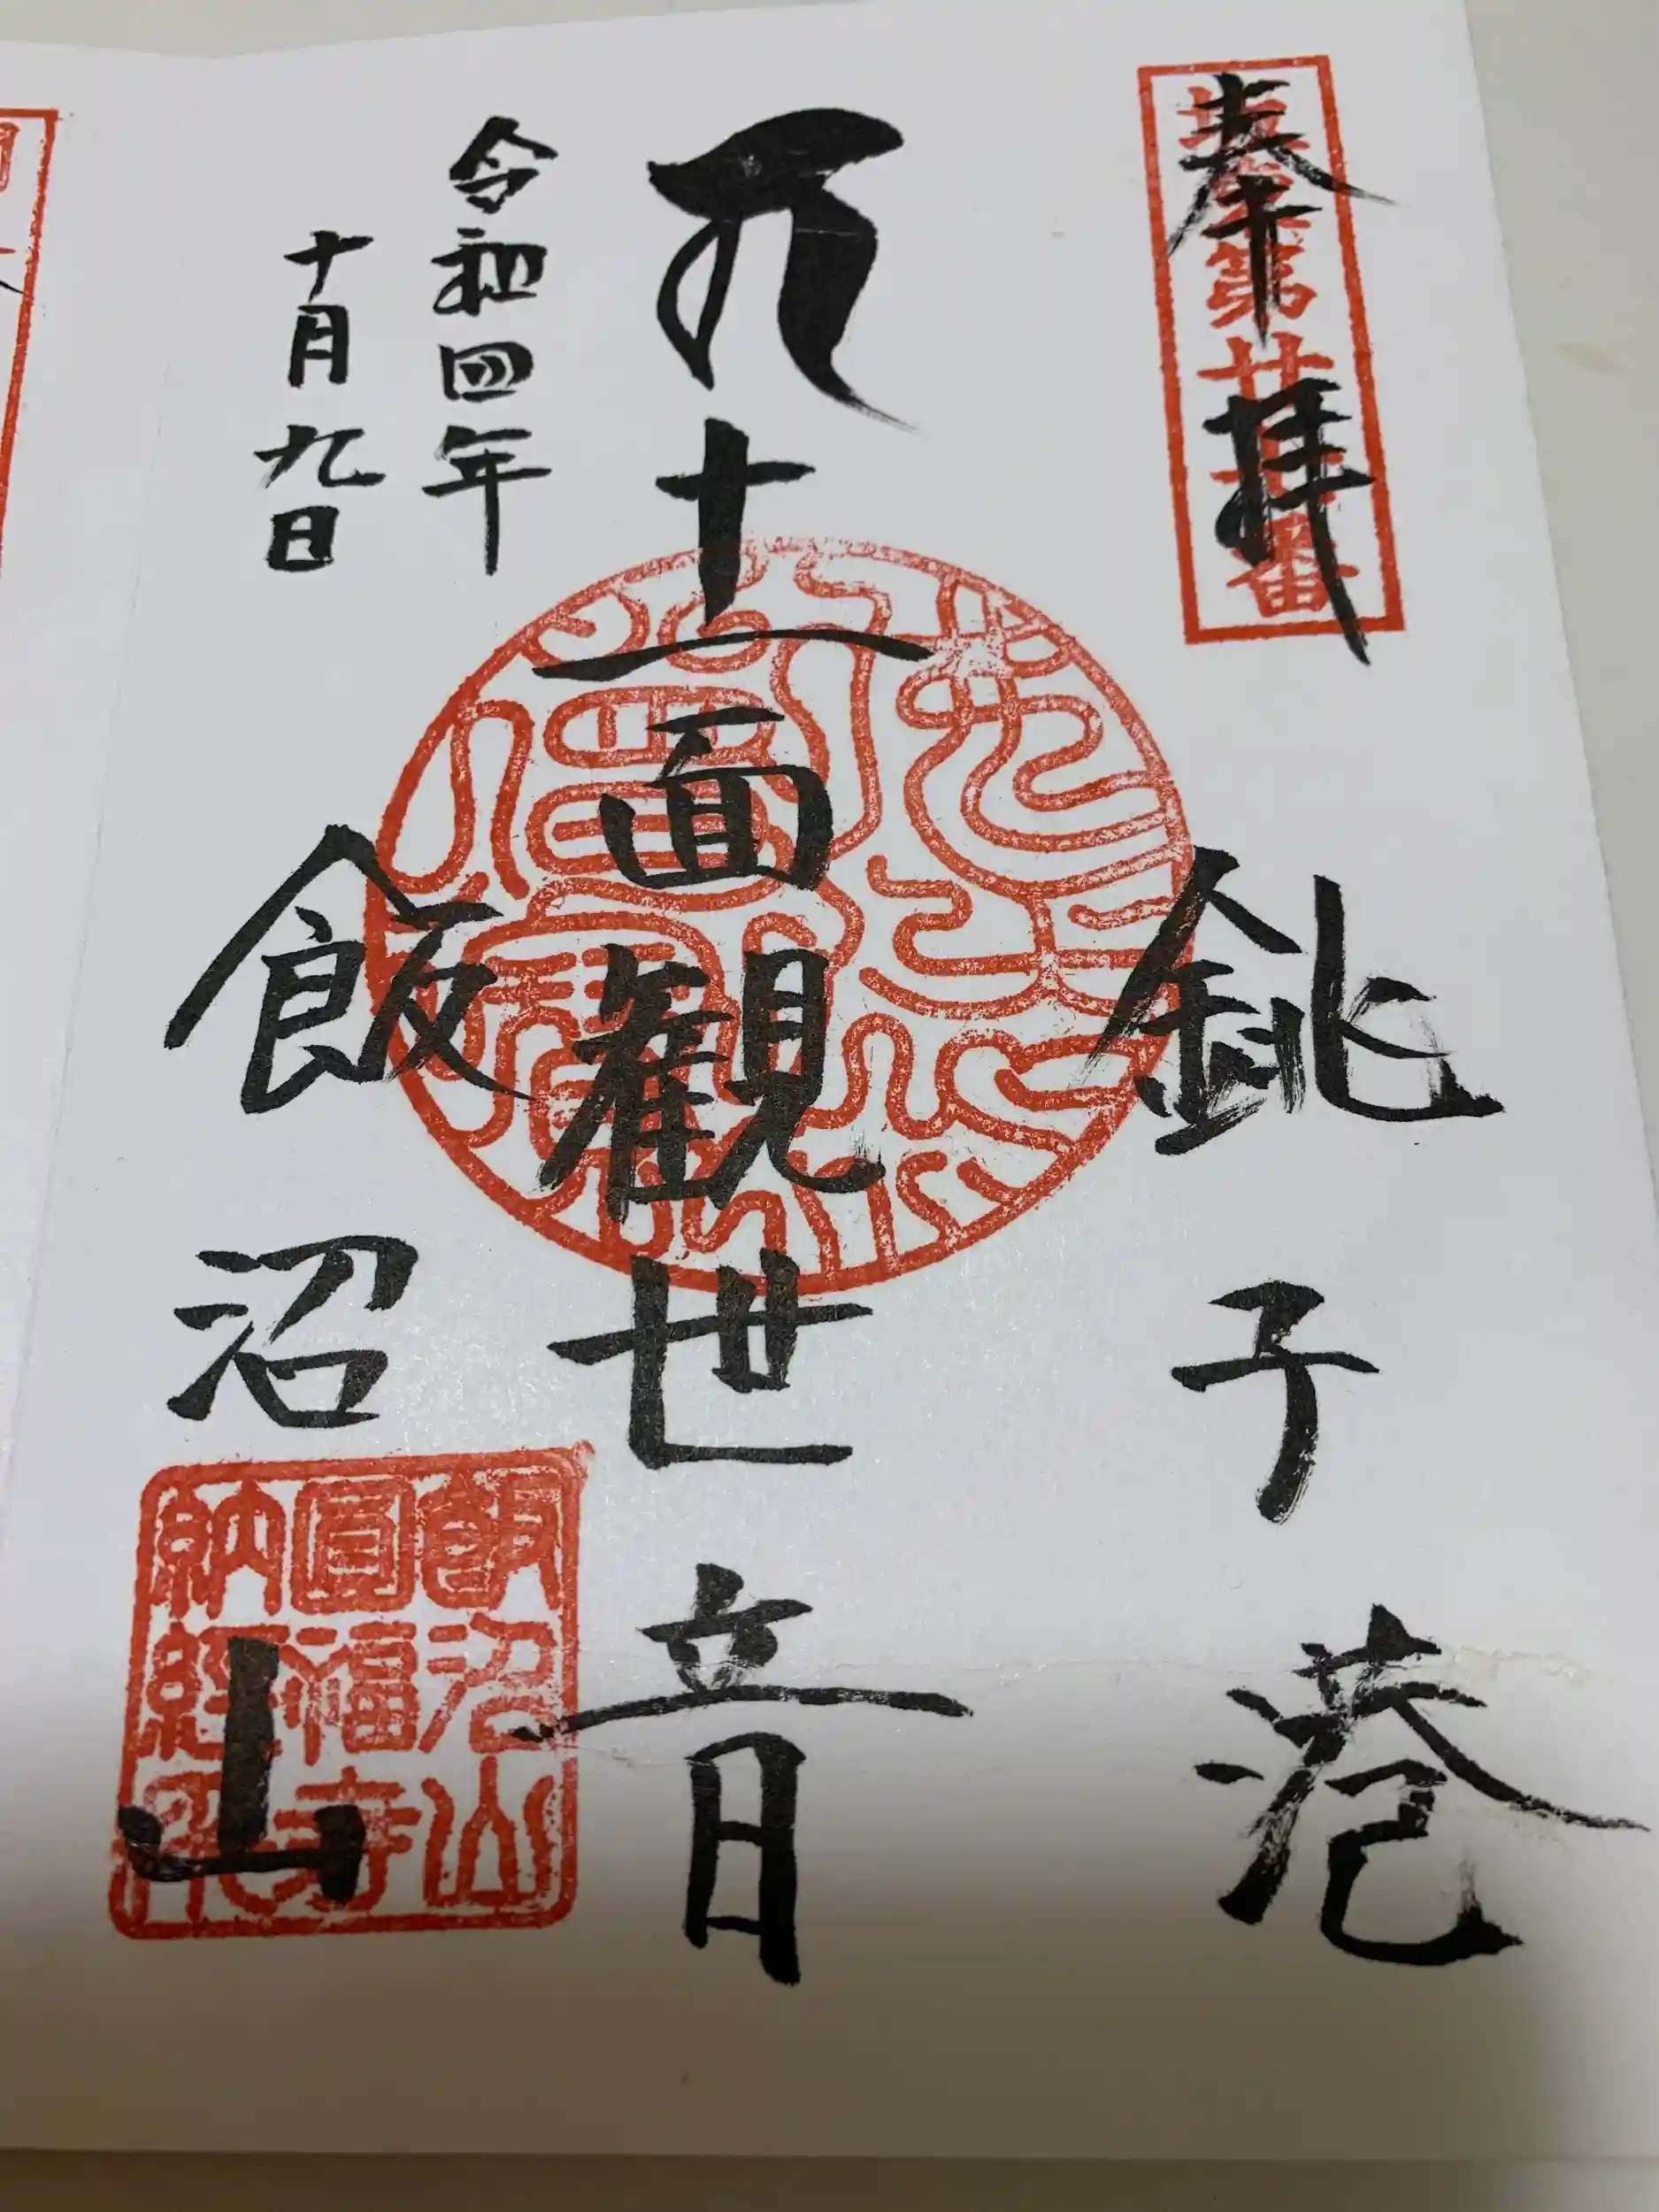 奉拝
坂東第廿七番
銚子港
十一面観世音
令和四年
十月九日
飯沼山
飯沼山
圓福寺
納経印